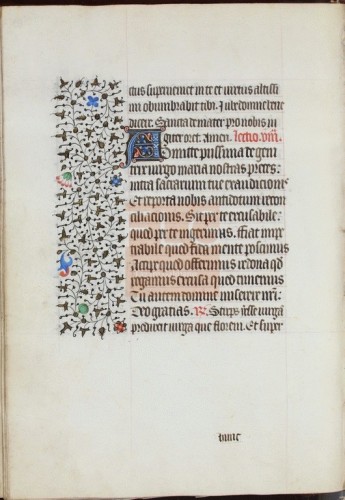 ctus superveniet in te et virtus altissi
mi obumbrabit tibi. Iube domne bene
dicere. Sancta dei mater pro nobis in
terceret. Amen. lectio. viii.
Admitte piissima dei geni
trix virgo maria nostras preces:
intra sacrarium tue exauditionis
Et reporta nobis antidotum recon
ciliationis. Sit per te excusabile:
quod per te ingerimus. fiat impe
trabile quod fida mente poscimus
Accipe quod offerimus redona qd
rogamus excusa quod timemus
Tu autem domine miserere nri.
Deo gratias. R. Stirps iesse virgam
produxit virga que florem. Et super
hunc